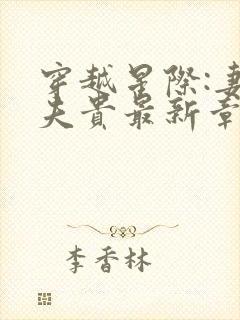 穿越星际:妻
夫贵最新章
李香林